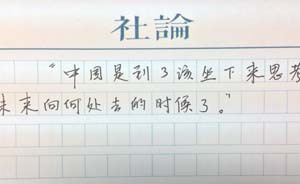 社論
“中国是到了该坐下来思考
未来向何处去的时候了。”